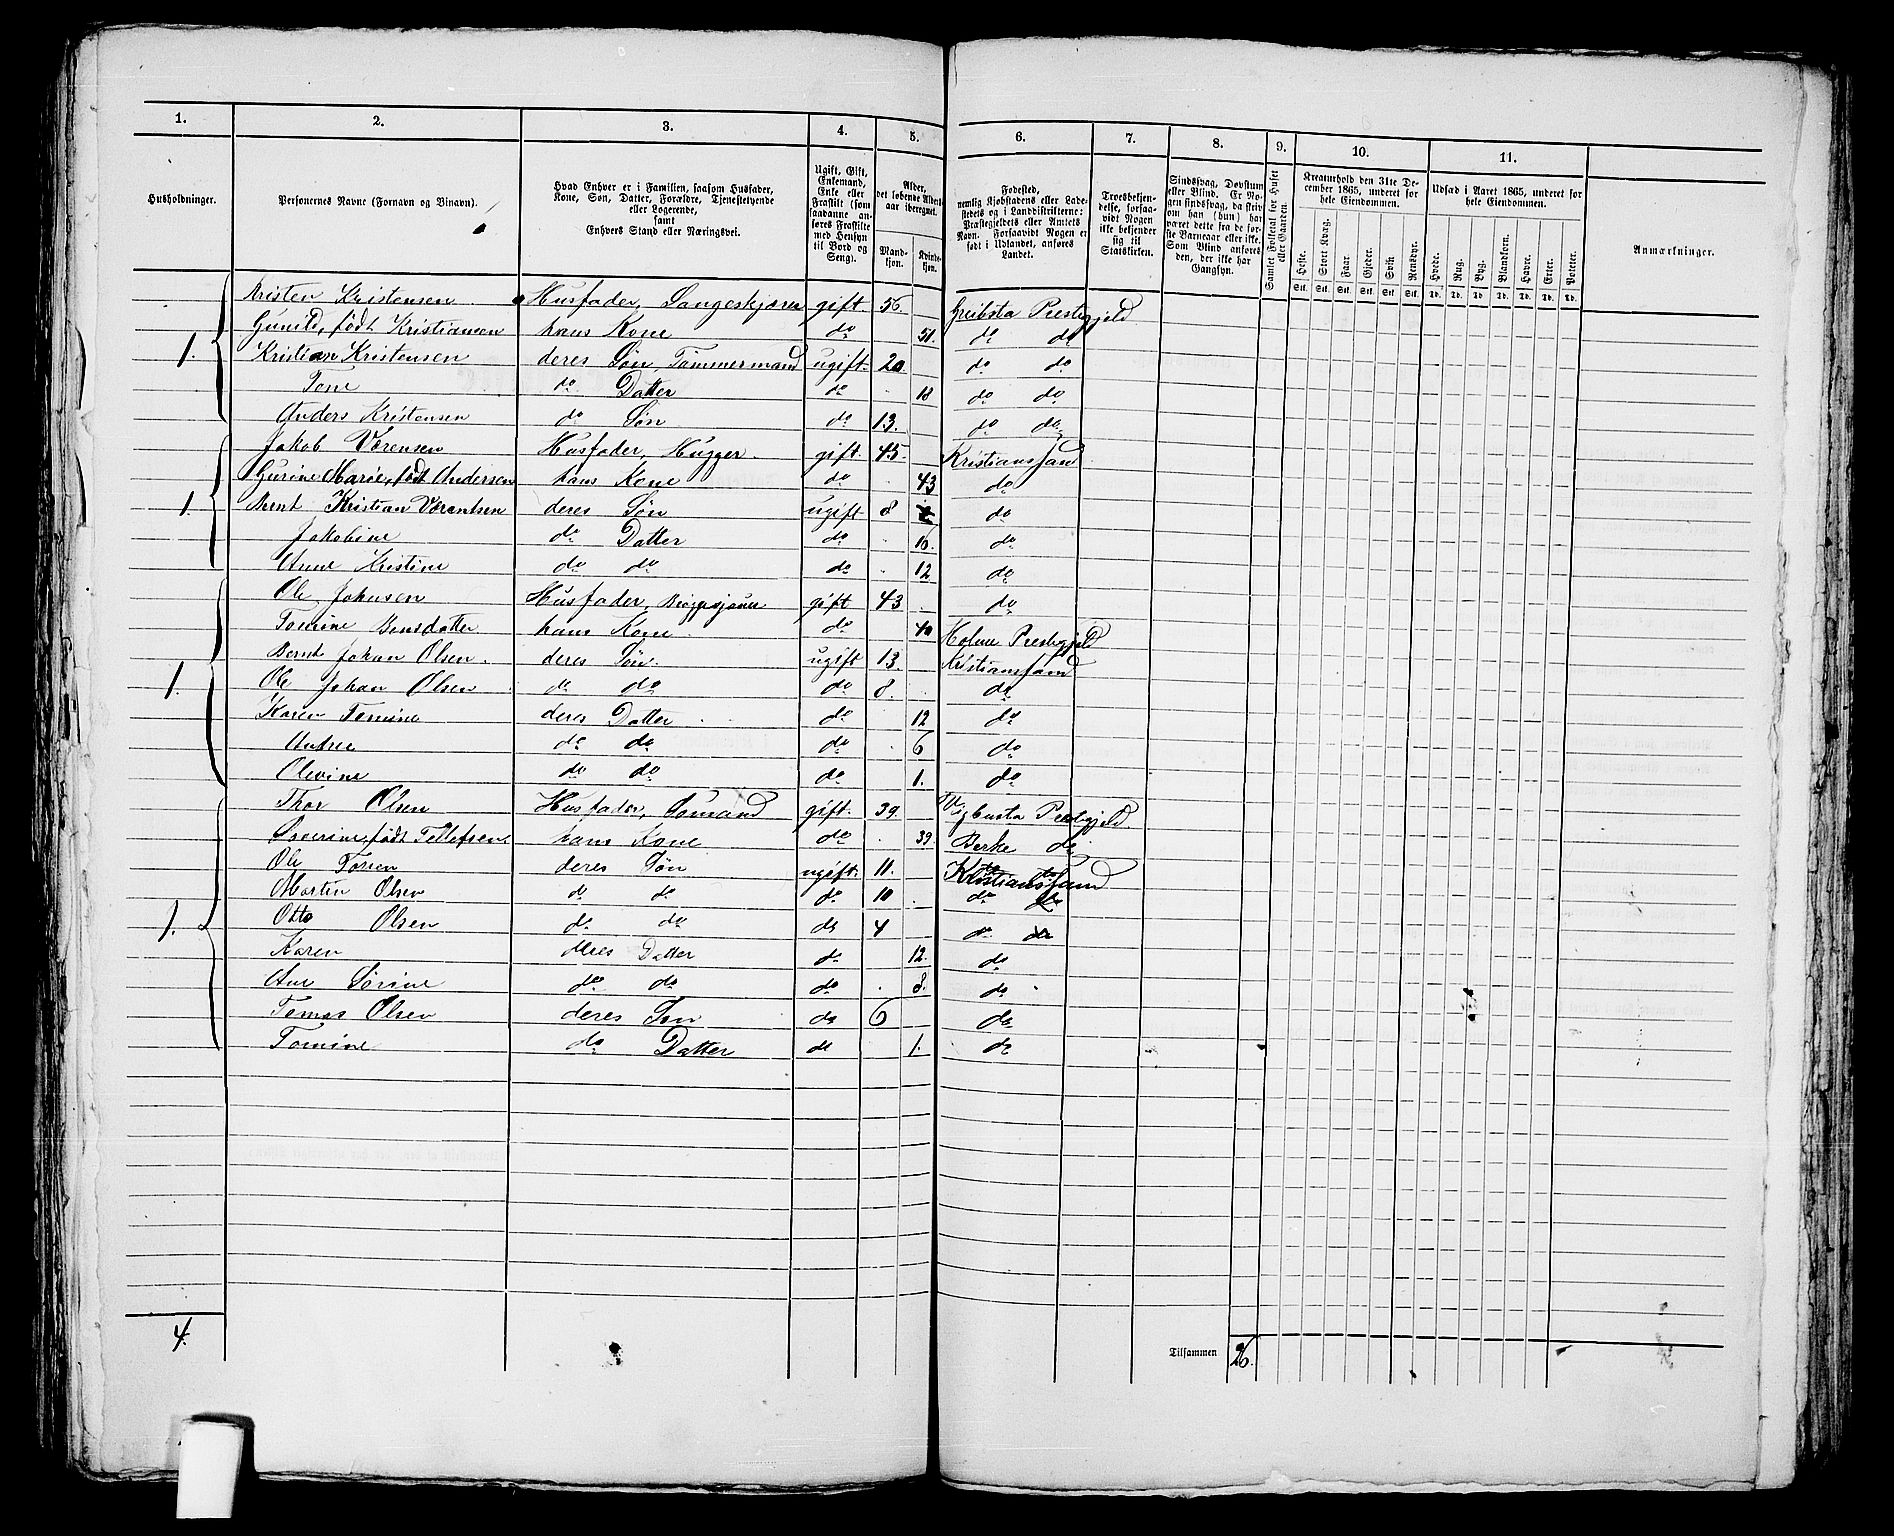 1. 2. 3. 4. 5. 6. 7. 8. 9. 10. 11.
Husholdninger.
Personernes Navne (Fornavn og Vinavn).
Hvad Enhver er i Familien, saasom Husfader, Kone, Søn, Datter, Forældre, Tjenestetyende eller Logerende, samt Enhvers Stand eller Næringsvei.
Ugift, Gift, Enkemand, Enke eller Fraskilt (som saadanne anføres Fraskilte med Hensyn til Bord og Seng).
Alder, det løbende Aldersaar iberegnet.
Mandkjøn. Kvindekjøn.
Fødested, nemlig Kjøbstadens eller Ladestedets og i Landdistrikterne: Præstegjeldets eller Amtets Navn. Forsaavidt Nogen er født i Udlandet, anføres Landet.
Troesbekjendelse, forsaavidt Nogen ikke bekjender sig til Statskirken.
Sindssvag, Døvstum eller Blind. Er Nogen sindssvag, da skrives om han (hun) har været dette fra de første Barneaar eller ikke. Som Blind anføres den, der ikke har Gangsyn.
Samlet Folketal for Huset eller Gaarden.
Kreaturhold den 31te December 1865, underet for hele Eiendommen.
Heste. Stort Kvæg. Faar. Gjeder. Sviin. Rensdyr.
Stk. Stk. Stk. Stk. Stk. Stk.
Udsæd i Aaret 1865, underet for hele Eiendommen.
Hvede. Rug. Byg. Blandkorn. Havre. Erter. Poteter.
Td. Td. Td. Td. Td. Td. Td.
Anmærkninger.
Kristen Kristensen Husfader, gift. 56. Greibsta Prestegjeld
Gunild, født Kristiansen hans Kone do 51. do do
1. Kristian Kristensen deres Søn, Tømmermand ugift. 20. do do
Tone do Datter do 18 do do
Anders Kristensen do Søn do 13. do do
Jakob Værensen Husfader, Hugger gift. 45. Kristianssand
Gurine Marie, født Andersen hans Kone do 43 do
1. Kristian Værentsen deres Søn ugift 8 do
Jakobine do Datter do 16. do
Anne Kristine do do do 12 do
Ole Johnsen Husfader, gift 43 do
Tomine Jensdatter hans Kone do 40 Holme Prestegjeld
Bernt Johan Olsen deres Søn. ugift 13. Kristianssand
1. Ole Johan Olsen do do do 8. do
Karen Tomine deres Datter do 12 do
Andrea do do do 6 do
Olevine do do do 1. do
Thor Olsen Husfader, Sømand gift. 39. Prestegjeld
Severine, født Tellefsen hans Kone do 39. do
Ole Torsen deres Søn ugift. 11. Kristianssand
Martin Olsen do do do 10 do do
1. Otto Olsen do do do 4 do do
Karen deres Datter do 12. do
Ane Sørine do do do 8. do
Tomas Olsen deres Søn do 6 do
Tomine do Datter do 1. do
4. Tilsammen 26.